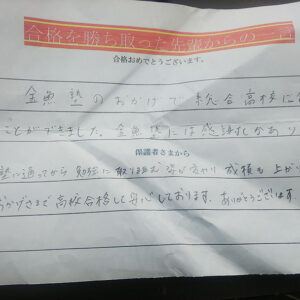 合格を勝ち取った先輩からの一言
合格おめでとうございます。
金魚塾のおかげで総合高校に合
ことができました。金魚塾には感謝しかあり
保護者さまから
塾に通ってから勉強に取り組む姿が変わり成績も上がり
おかげさまで高校合格し安心しております。ありがとうございます